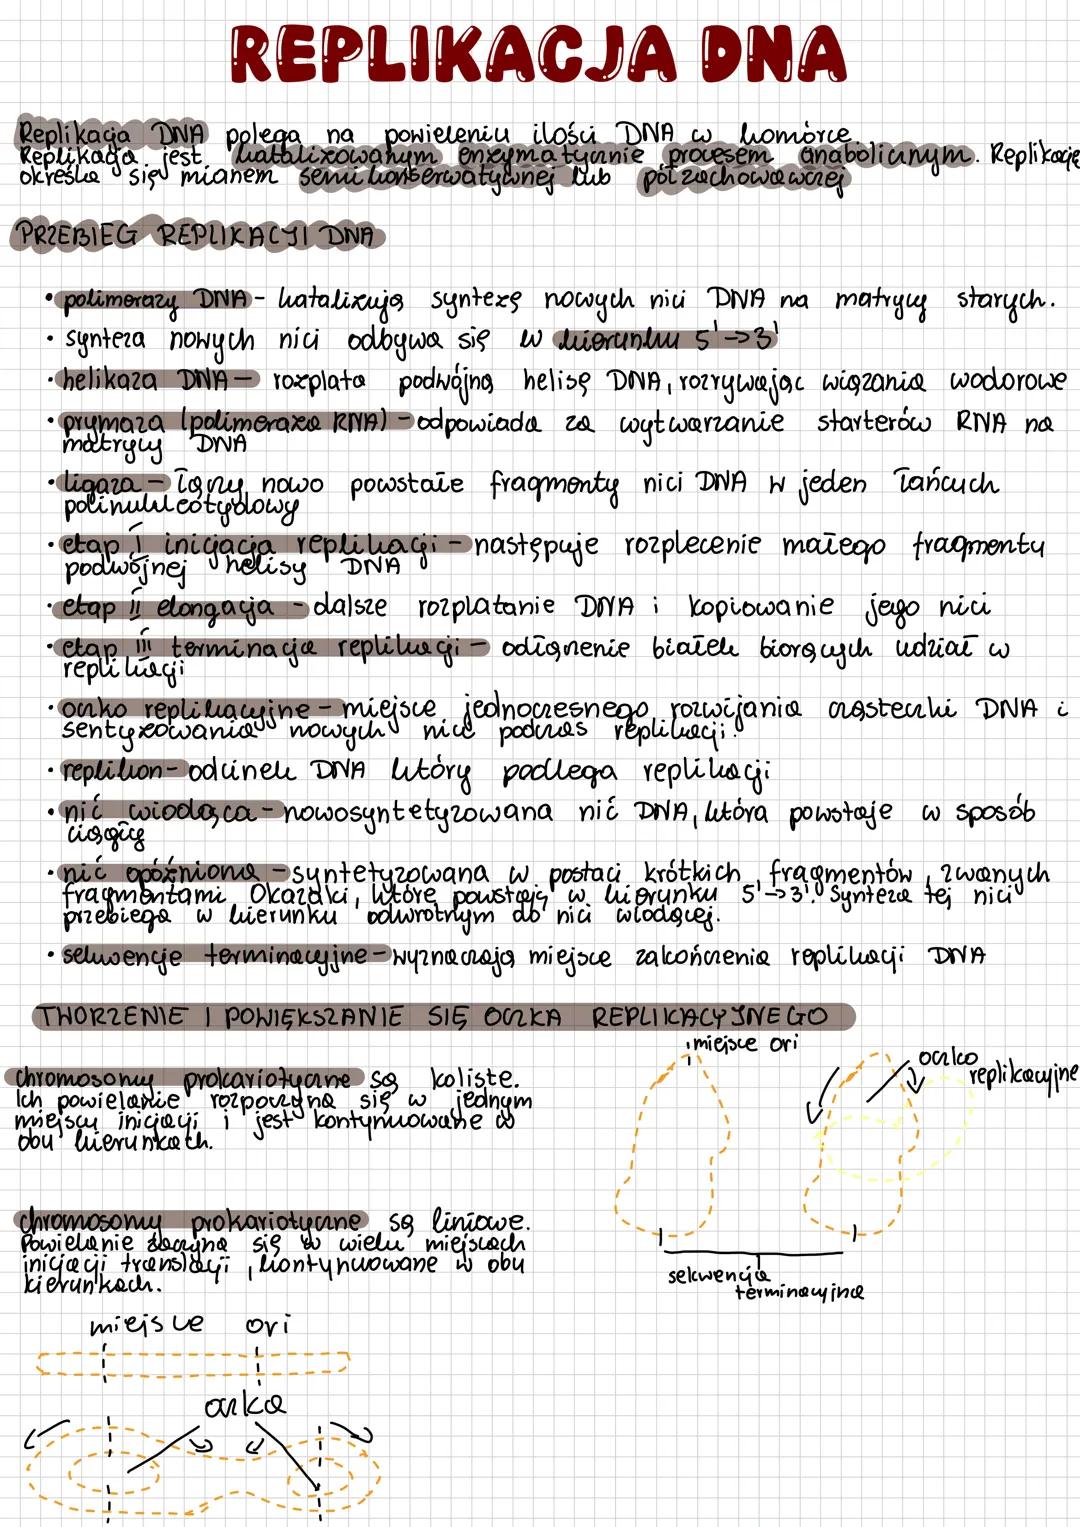 REPLIKACJA DNA
Replikacja DNA polega na powieleniu ilości DNA w komórce.
Replikacja jest katalizowanym enzymatycznie procesem anabolicznym. Replikację
określa się mianem semikonserwatywnej lub półzachowawczej
PRZEBIEG REPLIKACJI DNA
• polimerazy DNA - katalizują syntezę nowych nici DNA na matrycy starych.
• synteza nowych nici odbywa się w kierunku 5'->3'
• helikaza DNA - rozplata podwójną helisę DNA, rozrywając wiązania wodorowe
• prymaza (polimeraza RNA) - odpowiada za wytwarzanie starterów RNA na
matrycy DNA
• ligaza - łączy nowo powstałe fragmenty nici DNA w jeden łańcuch
polinukleotydowy
• etap I inicjacja replikacji - następuje rozplecenie małego fragmentu
podwójnej helisy DNA
• etap II elongacja - dalsze rozplatanie DNA i kopiowanie jego nici
• etap III terminacja replikacji - odłącznenie białek biorących udział w
replikacji
• oczko replikacyjne - miejsce jednoczesnego rozwijania cząsteczki DNA i
sentyzowania nowych nici podczas replikacji.
• replikon - odcinek DNA który podlega replikacji
• nić wiodąca - nowosyntetyzowana nić DNA, która powstaje w sposób
ciągły
• nić opóźniona - syntetyzowana w postaci krótkich fragmentów, zwanych
fragmentami Okazaki, które powstają w kierunku 5'->3'. Synteza tej nici
przebiega w kierunku odwrotnym do nici wiodącej.
• sekwencje terminacyjne - wyznaczają miejsce zakończenia replikacji DNA
TWORZENIE I POWIĘKSZANIE SIĘ OCZKA REPLIKACYJNEGO
chromosomy prokariotyczne są koliste.
Ich powielanie rozpoczyna się w jednym
miejscu inicjacji i jest kontynuowane w
obu kierunkach.
miejsce ori
oczko
replikacyjne
sekwencja
terminacyjna
chromosomy prokariotyczne są liniowe.
Powielanie zaczyna się w wielu miejscach
inicjacji translacji, kontynuowane w obu
kierunkach.
miejsce ori
oczka